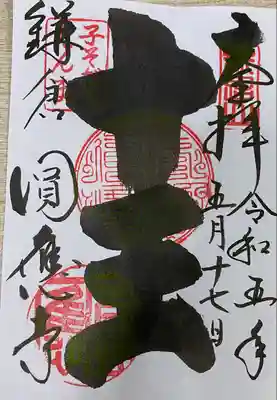 奉拝
令和五年
五月十七日
十王
鎌倉
圓應寺